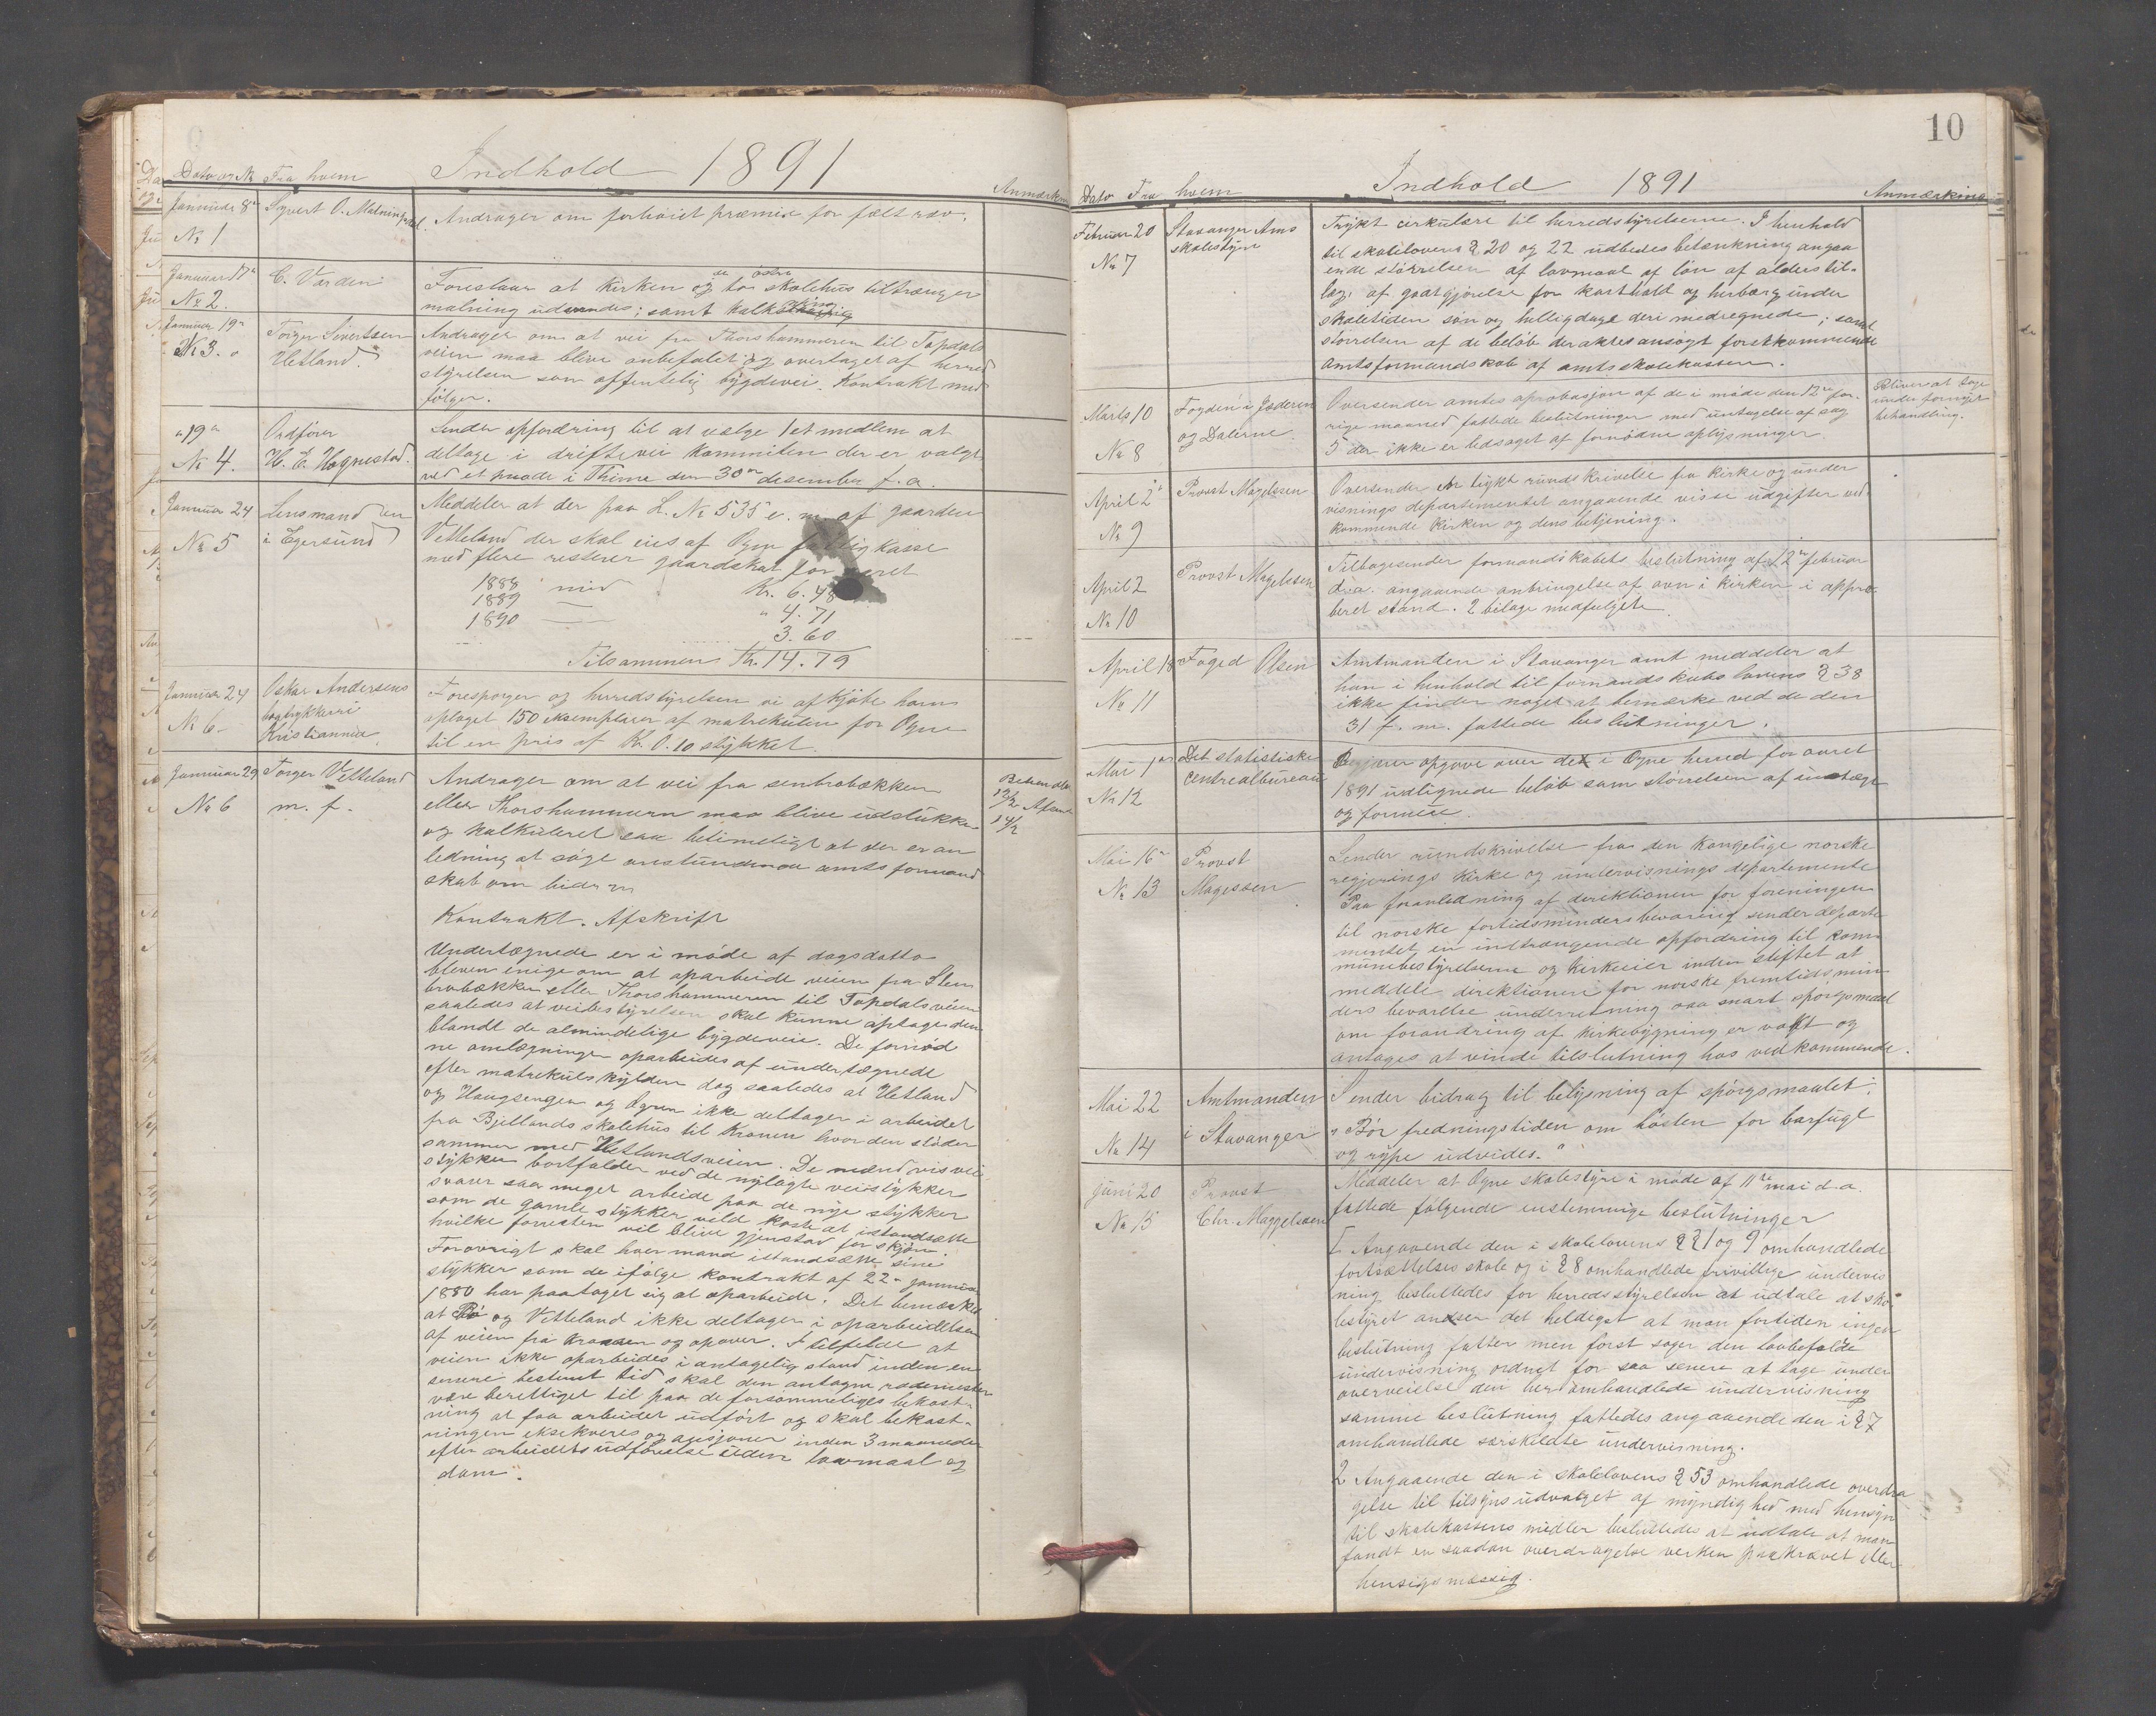 Indhold 1891
Dato og No Fra hvem Anmærkn
Januar 8de Syvert O. Malmin Andrager om forhöiet præmie for fælt ræv.
No 1
Januar 17de C. Varden Foreslaar at kirken og de to östre skolehus tiltrænger
No 2. malning udvendig; samt kalk
Januar 19de Torger Sivertsen Andrager om at vei fra Thorshammeren til Topdals
No 3. Hetland. veien maa blive anbefalet og overtaget af herred
styrelsen som offentelig bygdevei. Kontrakt med
følger.
" 19de Ordfører Sender opfordring til at vælge 1 et medlem at
No 4. H. E. Hognestad. deltage i driftevei kommiten der er valgt
ved et møde i Thime den 30te desember f. a.
Januar 24 Lensmanden Meddeler at der paa L. No 535 e. m. af gaarden
No 5 i Egersund Vetteland der skal eies af Ogne fattigkasse
med flere resterer gaardskat for aaret
1888 med Kr. 6.48
1889 — " 4.71
1890 — 3.60
Tilsammen Kr. 14.79
Januar 24 Oskar Andersens Forespørger og herredstyrelsen vi afkjøbe ham
No 6 bogtrykkeri oplaget 150 eksemplarer af matrekulen for Ogne
Kristiannia til en pris af Kr. 0.10 stykket.
Januar 29 Torger Vetteland Andrager om at vei fra
No 6 m. f. eller Thorshammeren maa blive udstukken
og kalkuleret saa betimeligt at der er an
ledning at søge amts formand
skab om bidrag
Behandlet
13/2 Afsendt
14/2
Kontrakt. Afskrift
Undertegnede er i møde af dagsdatto
bleven enige om at oparbeide veien fra Sten
brobækken eller Thorshammeren til Topdalsveien
saaledes at veibestyrelsen skal kunne optage den
blandt de almindelige bygdeveie. De fornød
ne omlægninger oparbeides af undertegnede
efter matrekulskylden dog saaledes at Hetland
og Haugsengen og Ogren ikke deltager i arbeidet
fra Bjellands skolehus til Kronen hvor den støder
sammen med Hetlandsveien. De mænd vis vei
stykker bortfalder ved de nylagte veistykker
svarer saa meget arbeide paa de nye stykker
som de gamle stykker vild koste at istandsætte
hvilke forresten vil blive gjenstand for skjøn.
Forøvrigt skal hver mand istandsætte sine
stykker som de ifølge kontrakt af 22de januar
1880 har paataget sig at oparbeide. Det bemærkes
at Bö og Vetteland ikke deltager i oparbeidelsen
af veien fra Kronen og opover. I tilfelde at
veien ikke oparbeides i antagelig stand inden en
senere bestemt tid skal den antagne rodemester
være berettiget til paa de forsømmeliges bekost-
ning at faa arbeidet udført og skal bekost-
ningen eksekveres og inden 3 maaneder
efter arbeidets udførelse uden lovmaal og
dom.
10
Indhold 1891
Dato Fra hvem Anmærkning
Februar 20 Stavanger Amts Trykt cirkulære til herredstyrelserne. I henhold
No 7 skolestyre til skolelovens § 20 og 22 udbedes betænkning angaa
ende størrelsen af lovmaal af løn af alders til-
læg, af godtgjørelse for kosthold og herberg under
skoletiden søn og helligdage deri medregnede; samt
størrelsen af de beløb der aktes ansøgt førstkommende
Amtsformandskab af amtsskolekassen.
Marts 10 Fogden i Jæderen Oversender amtes aprobasjon af de i møde den 12te for-
No 8 og Dalerne. rige maaned fattede beslutninger med untagelse af sag
5 der ikke er ledsaget af fornødne oplysninger.
Bliver at tage
under fornyet
behandling.
April 2de Provst Magelssen Oversender en trykt rundskrivelse fra kirke og under
No 9 visnings departementet angaaende visse udgifter ved
kommende kirken og dens betjening.
April 2 Provst Magelssen Tilbagesender formandskabets beslutning af 12te februar
No 10 d. a. angaaende anbringelse af ovn i kirken i appro-
beret stand. 2 bilage medfulgte
April 18de Foged Olsen Amtmanden i Stavanger amt meddeler at
No 11 han i henhold til formandskabs lovens § 38
ikke finder noget at bemærke ved de den
31 f. m. fattede beslutninger.
Mai 1ste Det statistiske opgave over det i Ogne herred for aaret
No 12 Centralbureau 1891 udlignede beløb som størrelsen af indtægt
og formue.
Mai 16de Provst Sender rundskrivelse fra den kongelige norske
No 13 Magelssen regjerings kirke og undervisnings departemente
Paa foranledning af direktionen for foreningen
til norske fortidsminders bevaring sender departe
mentet en indtrængende opfordring til kom
munebestyrelserne og kirkeeier inden stiftet at
meddele direktionen for norske fremtidsmin
ders bevarelse underretning saa snart spørgsmaal
om forandring af kirkebygning er vakt og
antages at vinde tilslutning hos vedkommende.
Mai 22 Amtmanden Sender bidrag til belysning af spørgsmaalet:
No 14 i Stavanger "Bør fredningstiden om høsten for barfugl
og rype udvides."
Juni 20 Provst Meddeler at Ogne skolestyre i møde af 11te mai d. a.
No 15 Chr. Maggelssen fattede følgende enstemmige beslutninger
1 Angaaende den i skolelovens §§ 1 og 9 omhandlede
fortsættelses skole og i § 8 omhandlede frivillige undervis
ning besluttedes for herredsstyrelsen at udtale at sko
lestyret anser det heldigst at man fortiden ingen
beslutning fatter men først søger den lovbefalde
undervisning ordnet for saa senere at tage under
overveielse den her omhandlede undervisning
samme beslutning fattedes angaaende den i § 7
omhandlede særskildte undervisning.
2 Angaaende den i skolelovens § 53 omhandlede overdra
gelse til tilsynsudvalget af myndighed med hensyn
til skolekassens midler besluttedes at udtale at man
fandt en saadan overdragelse verken paakrævet eller
hensigsmæssig.